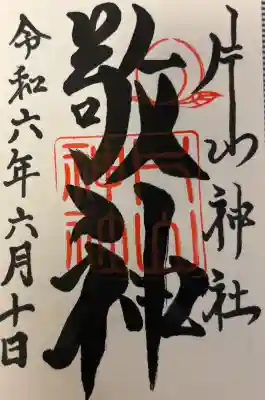 片山神社
敬神
令和六年六月十日